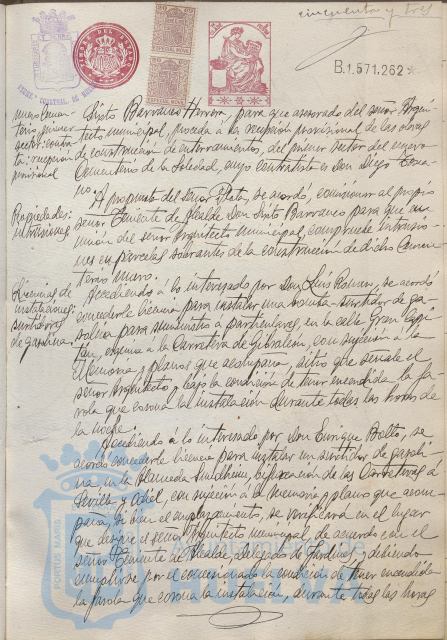 cincuenta y tres
B.1.571.262
TIMBRE DEL ESTADO
ESPECIAL MOVIL
Sixto Barranco Herrera, para que asesorado del señor Arqui-
tecto municipal, proceda á la recepción provisional de las obras
de construcción de enterramientos, del primer sector del nuevo
Cementerio de la Soledad, cuyo contratista es Don Diego
no.
A propuesta del señor Plata, se acordó, comisionar al propio
señor Teniente de Alcalde Don Sixto Barranco para que en
unión del señor Arquitecto municipal, compruebe
nes en parcelas sobrantes de la construcción de dicho Cemen-
terio nuevo.
Accediendo á lo interesado por Don Luis Roman, se acordó
concederle licencia para instalar una bomba-surtidor de ga-
solina para suministro a particulares, en la calle Gran Capi-
tan, esquina á la Carretera de Gibraleon, con sujeción á la
Memoria y planos que acompaña, sitio que señale el
señor Arquitecto y bajo la condición de tener encendida la fa-
rola que corona la instalación durante todas las horas de
la noche.
Accediendo á lo interesado por Don Enrique Bolto, se
acordó concederle licencia para instalar un surtidor de gasoli-
na, en la Alameda Sundheim, bifurcación de las Carreteras á
Sevilla y Odiel, con sujeción á la Memoria y plano que acom-
paña, si bien el emplazamiento, se verificará en el lugar
que designe el señor Arquitecto municipal, de acuerdo con el
señor Teniente de Alcalde, delegado de Jardines, debiendo
cumplirse por el concesionario la condición de tener encendida
la farola que corona la instalación, durante todas las horas
terio, primer
sector contra-
ta: recepción
provisional
Propiedades:
Licencias de
instalaciones:
surtidores
de gasolina.
PORTUS MARIS